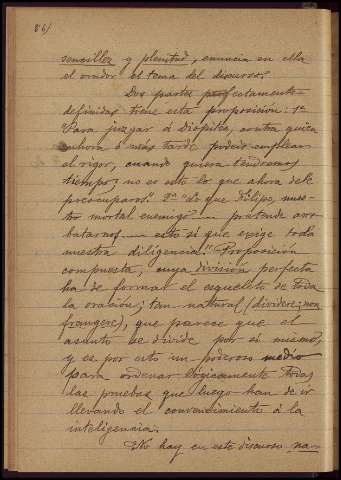 86/
sencillez y plenitud, enuncia en ella
el orador el tema del discurso?
Dos partes perfectamente
definidas tiene esta proposición: 1ª
"Para juzgar á Diopites, contra quien
ahora o más tarde podeis emplear
el rigor, cuando quiera tendremos
tiempo; no es esto lo que ahora debe
preocuparos." 2ª "Lo que Filipo, nues-
tro mortal enemigo — pretende arre-
bataros — esto si que exige toda
nuestra diligencia." Proposición
compuesta, cuya división perfecta
ha de formar el esqueleto de toda
la oración; tan natural (dividere, non
frangere), que parece que el
asunto se divide por si mismo,
y es por esto un poderoso medio
para ordenar lógicamente todas
las pruebas que luego han de ir
llevando el convencimiento á la
inteligencia.
No hay en este discurso na-